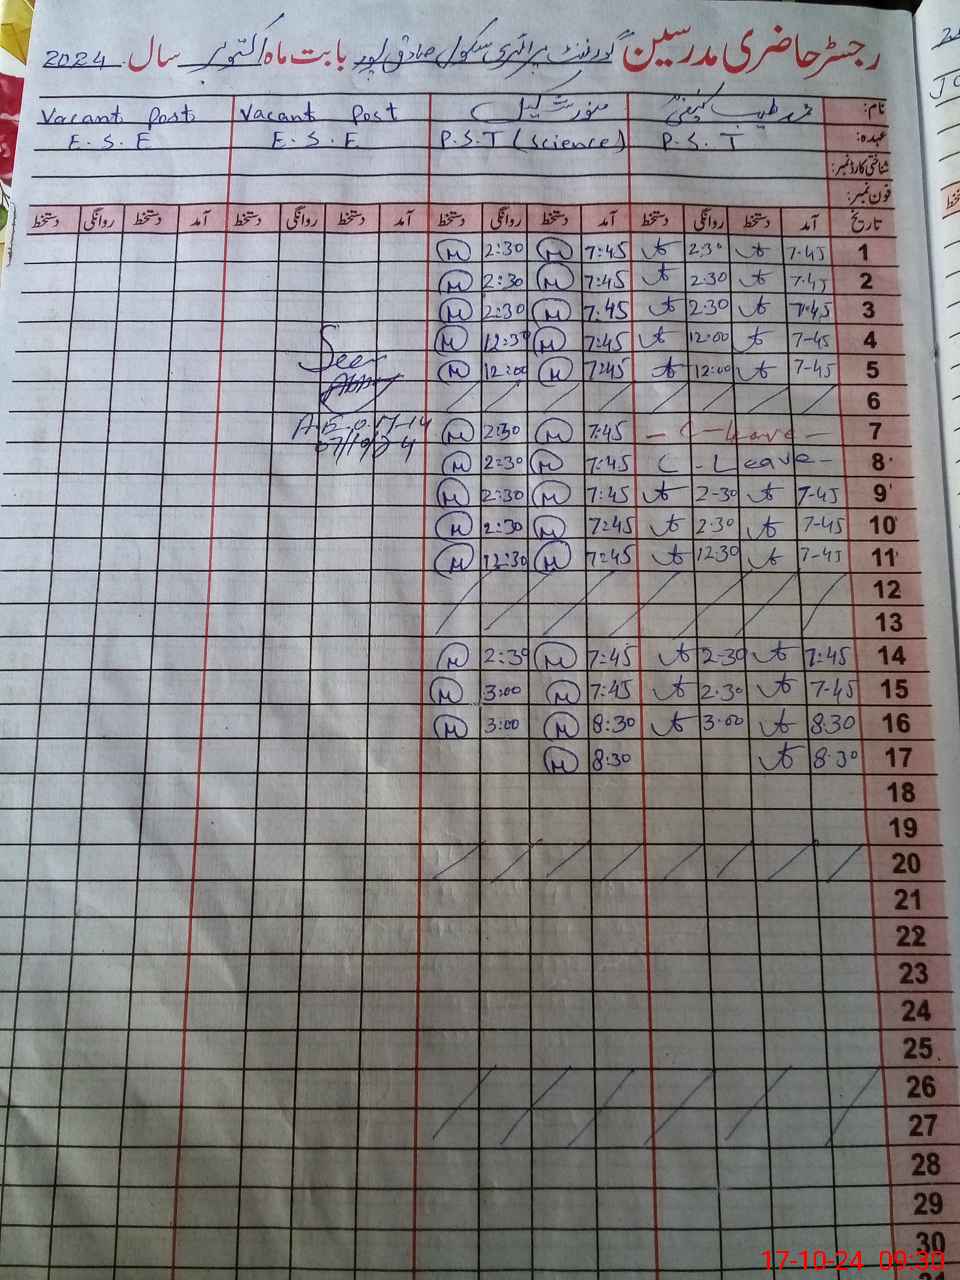 رجسٹر حاضری مدرسین گورنمنٹ پرائمری سکول صادق پور بابت ماہ اکتوبر سال 2024
نام: محمد طیب Vacant Post Vacant Post
عہدہ: P.S.T P.S.T (Science) E.S.E E.S.E
شناختی کارڈ نمبر:
فون نمبر:
تاریخ آمد دستخط روانگی دستخط آمد دستخط روانگی دستخط آمد دستخط روانگی دستخط آمد دستخط روانگی دستخط
1 7.45 2:30 7:45 2:30
2 7.45 2.30 7:45 2:30
3 7.45 2:30 7:45 2:30
4 7-45 12:00 7:45 12:30
5 7-45 12:00 7:45 12:00
See
6
7 - C - Leave - 7:45 2:30
A.E.O M-14
07/10/24
8 C - Leave - 7:45 2:30
9 7-45 2-30 7:45 2:30
10 7-45 2.30 7:45 2:30
11 7-45 12.30 7:45 12:30
12
13
14 7:45 2-30 7:45 2:30
15 7-45 2.30 7:45 3:00
16 8.30 3.00 8:30 3:00
17 8.30 8:30
18
19
20
21
22
23
24
25
26
27
28
29
30
17-10-24 09:30